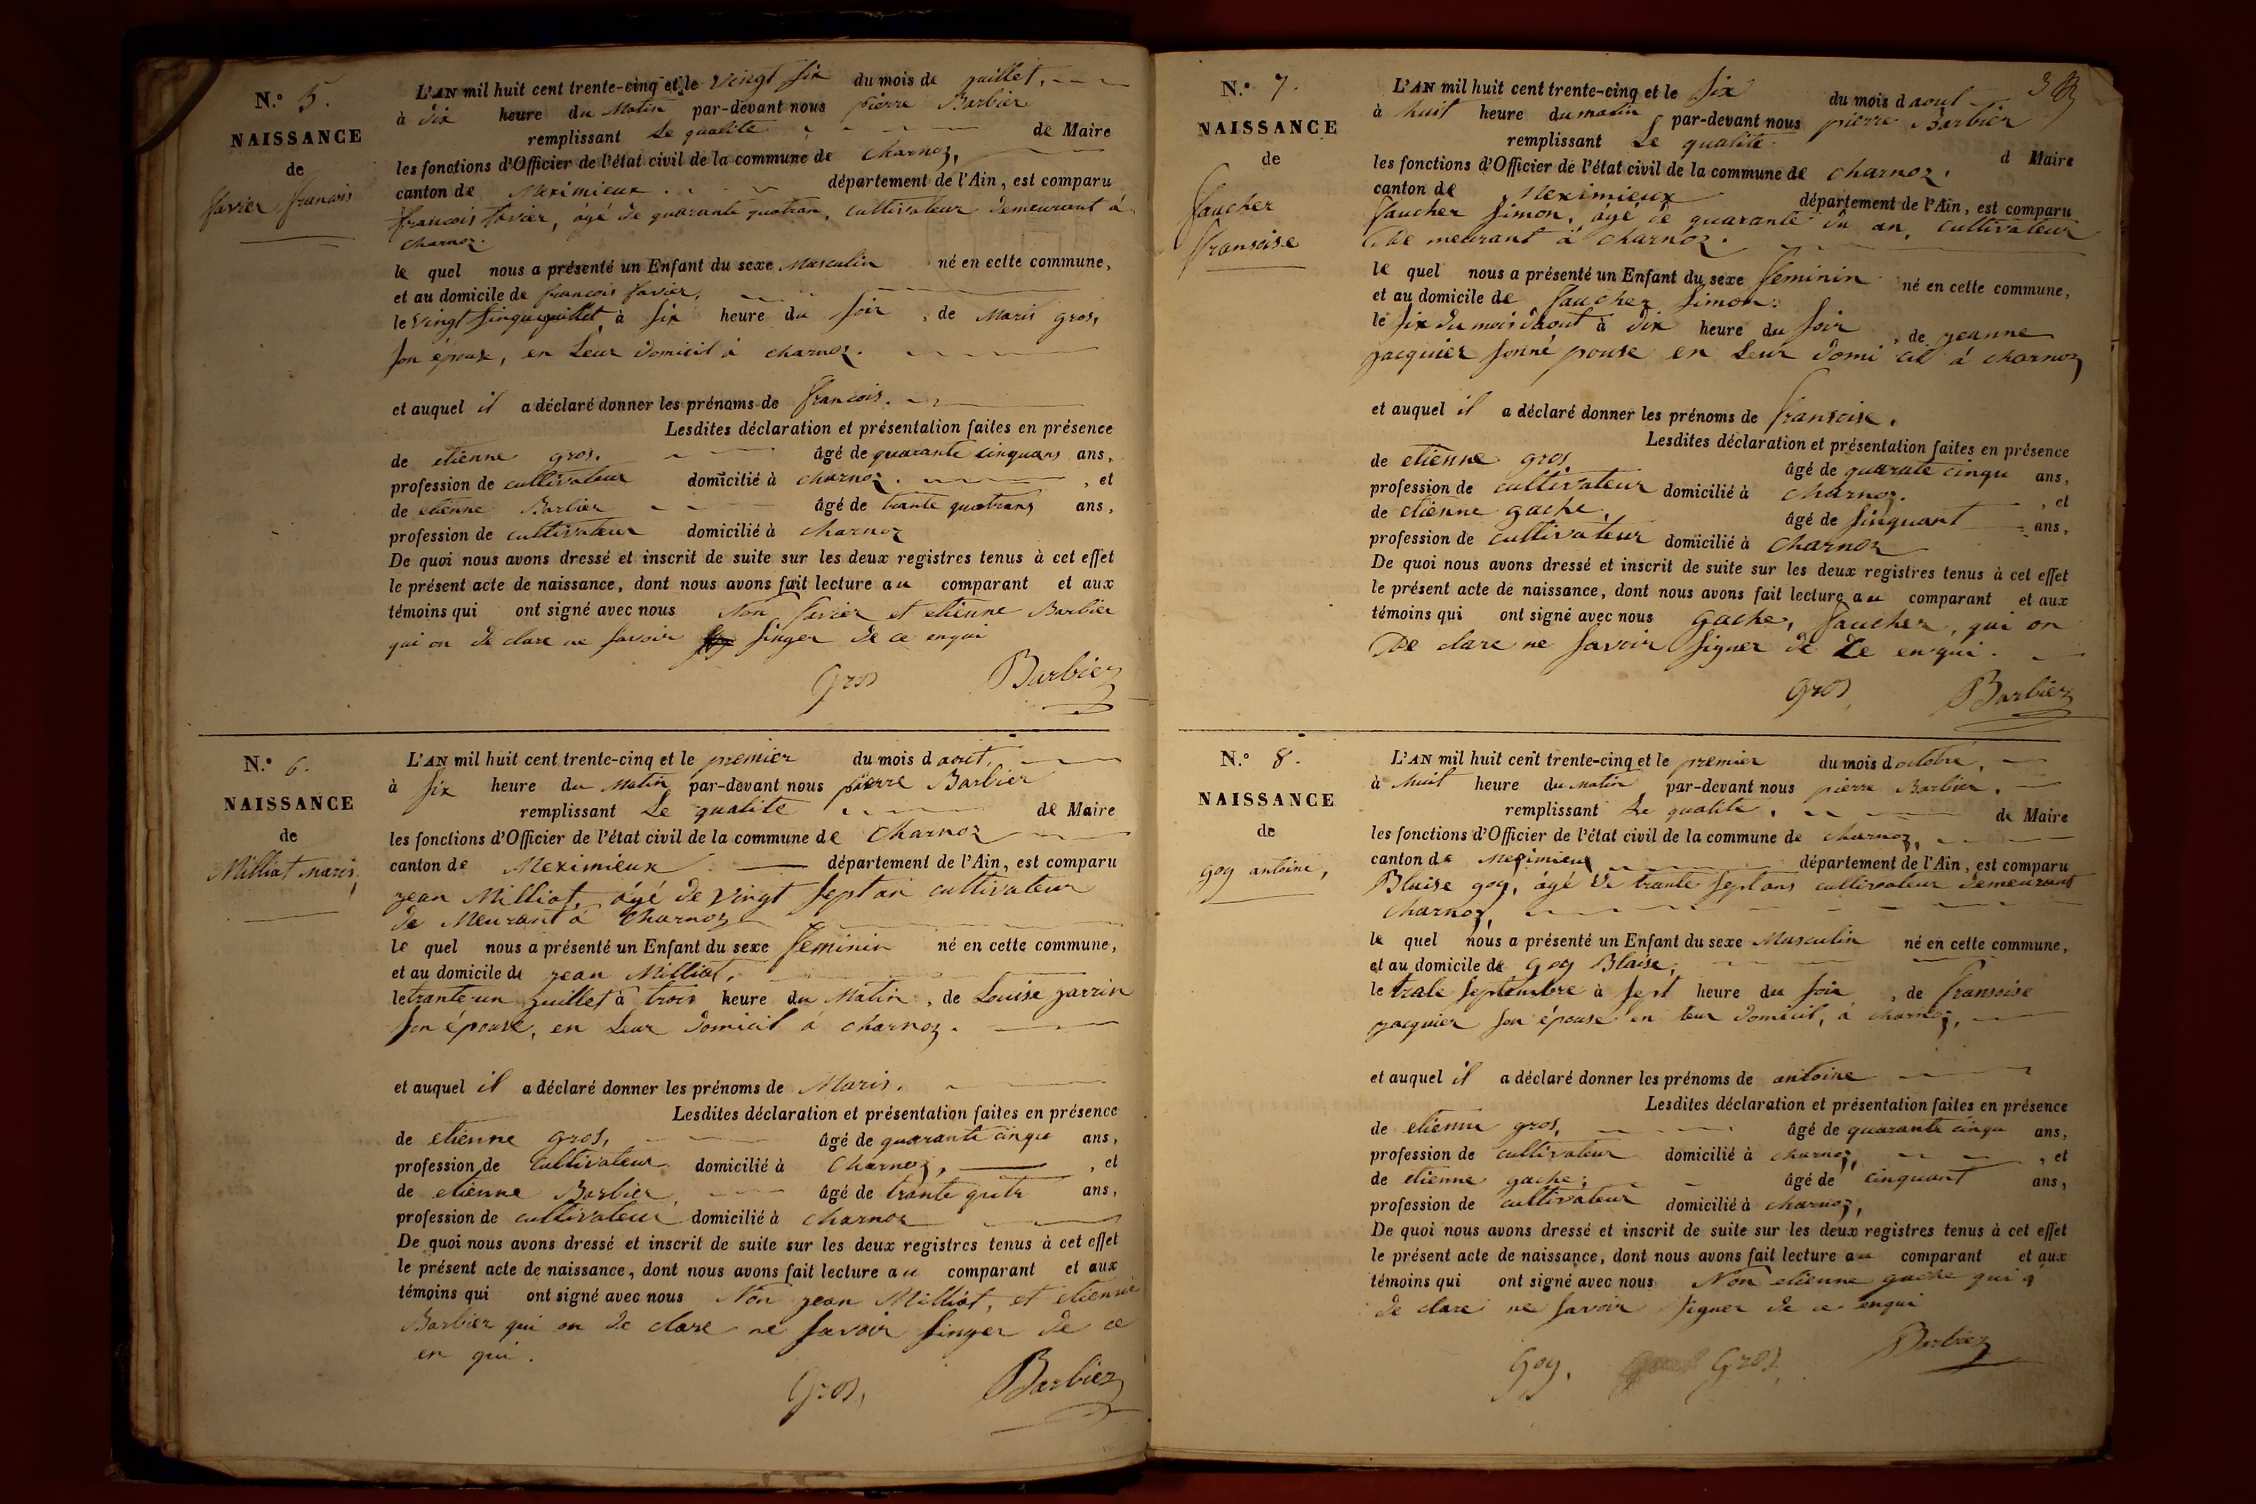 N.° 5.
NAISSANCE
de
favier francois
L'AN mil huit cent trente-cinq et le Vingt Six du mois de juillet.
à dix heure du Matin par-devant nous pierre Barbier
remplissant Le qualite de Maire
les fonctions d'Officier de l'état civil de la commune de Charnoz,
canton de Meximieux. département de l'Ain, est comparu
francois favier, âgé de quarante quatran, cultivateur demeurant á
charnoz.
le quel nous a présenté un Enfant du sexe Masculin né en cette commune,
et au domicile de francois favier,
le Vingt Sinqu juillet à Six heure du Soir, de Maris gros,
Son épouse, en Leur domicil à charnoz.
et auquel il a déclaré donner les prénoms de francois.
Lesdites déclaration et présentation faites en présence
de etienne gros. âgé de quarante cinquans ans,
profession de cultivateur domicilié à charnoz. , et
de etienne Barbier âgé de trante quatrans ans,
profession de cultivateur domicilié à charnoz
De quoi nous avons dressé et inscrit de suite sur les deux registres tenus à cet effet
le présent acte de naissance, dont nous avons fait lecture au comparant et aux
témoins qui ont signé avec nous Non favier et etienne Barbier
qui on de clare ne Savoir Singer de ce enqui
Gros Barbier
N.° 6.
NAISSANCE
de
Milliat Maris,
L'AN mil huit cent trente-cinq et le premier du mois d aout,
à Six heure du Matin par-devant nous pierre Barbier
remplissant Le qualite de Maire
les fonctions d'Officier de l'état civil de la commune de Charnoz
canton de Meximieux département de l'Ain, est comparu
jean Milliat, âgé de Vingt Sept an cultivateur
de Meurant á Charnoz
le quel nous a présenté un Enfant du sexe feminin né en cette commune,
et au domicile de jean Milliat,
le trante un juillet à trois heure du Matin, de Louise jarrin
Son épouse, en Leur domicil á charnoz.
et auquel il a déclaré donner les prénoms de Maris.
Lesdites déclaration et présentation faites en présence
de etienne gros, âgé de quarante cinqu ans,
profession de cultivateur domicilié à Charnoz, , et
de etienne Barbier, âgé de trante qutr ans,
profession de cultivateur domicilié à charnoz
De quoi nous avons dressé et inscrit de suite sur les deux registres tenus à cet effet
le présent acte de naissance, dont nous avons fait lecture au comparant et aux
témoins qui ont signé avec nous Non jean Milliat, et etienne
Barbier qui on de clare ne Savoir Singer de ce
en qui.
Gros, Barbier
3
N.° 7.
NAISSANCE
de
faucher
fransoise
L'AN mil huit cent trente-cinq et le Six du mois d aout
à huit heure du matin par-devant nous pierre Barbier
remplissant Le qualite d Maire
les fonctions d'Officier de l'état civil de la commune de charnoz,
canton de Meximieux département de l'Ain, est comparu
faucher Simon, âgé de quarante un an, cultivateur
De meurant á charnoz.
le quel nous a présenté un Enfant du sexe feminin né en cette commune,
et au domicile de faucher Simon.
le Six du mois daout à dix heure du Soir, de jeanne
jacquier Sonné pouse en Leur domi cil á charnoz
et auquel il a déclaré donner les prénoms de fransoise.
Lesdites déclaration et présentation faites en présence
de etienne gros âgé de quarate cinqu ans,
profession de cultivateur domicilié à Charnoz. , et
de etienne gache, âgé de Sinquant ans,
profession de cultivateur domicilié à Charnoz
De quoi nous avons dressé et inscrit de suite sur les deux registres tenus à cet effet
le présent acte de naissance, dont nous avons fait lecture au comparant et aux
témoins qui ont signé avec nous gache, faucher, qui on
De clare ne Savoir Signer de Ce enqui.
Gros, Barbier
N.° 8.
NAISSANCE
de
goy antoine,
L'AN mil huit cent trente-cinq et le premier du mois d octobre,
à huit heure du Matin par-devant nous pierre Barbier.
remplissant Le qualite. de Maire
les fonctions d'Officier de l'état civil de la commune de charnoz,
canton de Meximieux département de l'Ain, est comparu
Blaise goy, âgé de trante Sept ans cultivateur demeurant
charnoz,
le quel nous a présenté un Enfant du sexe Masculin né en cette commune,
et au domicile de Goy Blaise,
le trate Septembre à Sept heure du Soir, de fransoise
jacquier Son épouse en leur domicil, à charnoz,
et auquel il a déclaré donner les prénoms de antoine
Lesdites déclaration et présentation faites en présence
de etienne gros, âgé de quarante cinqu ans,
profession de cultivateur domicilié à charnoz, , et
de etienne gache, âgé de cinquant ans,
profession de cultivateur domicilié à charnoz,
De quoi nous avons dressé et inscrit de suite sur les deux registres tenus à cet effet
le présent acte de naissance, dont nous avons fait lecture au comparant et aux
témoins qui ont signé avec nous Non etienne gache qui á
de clare ne Savoir Signer de ce enqui
Goy, Gros, Barbier